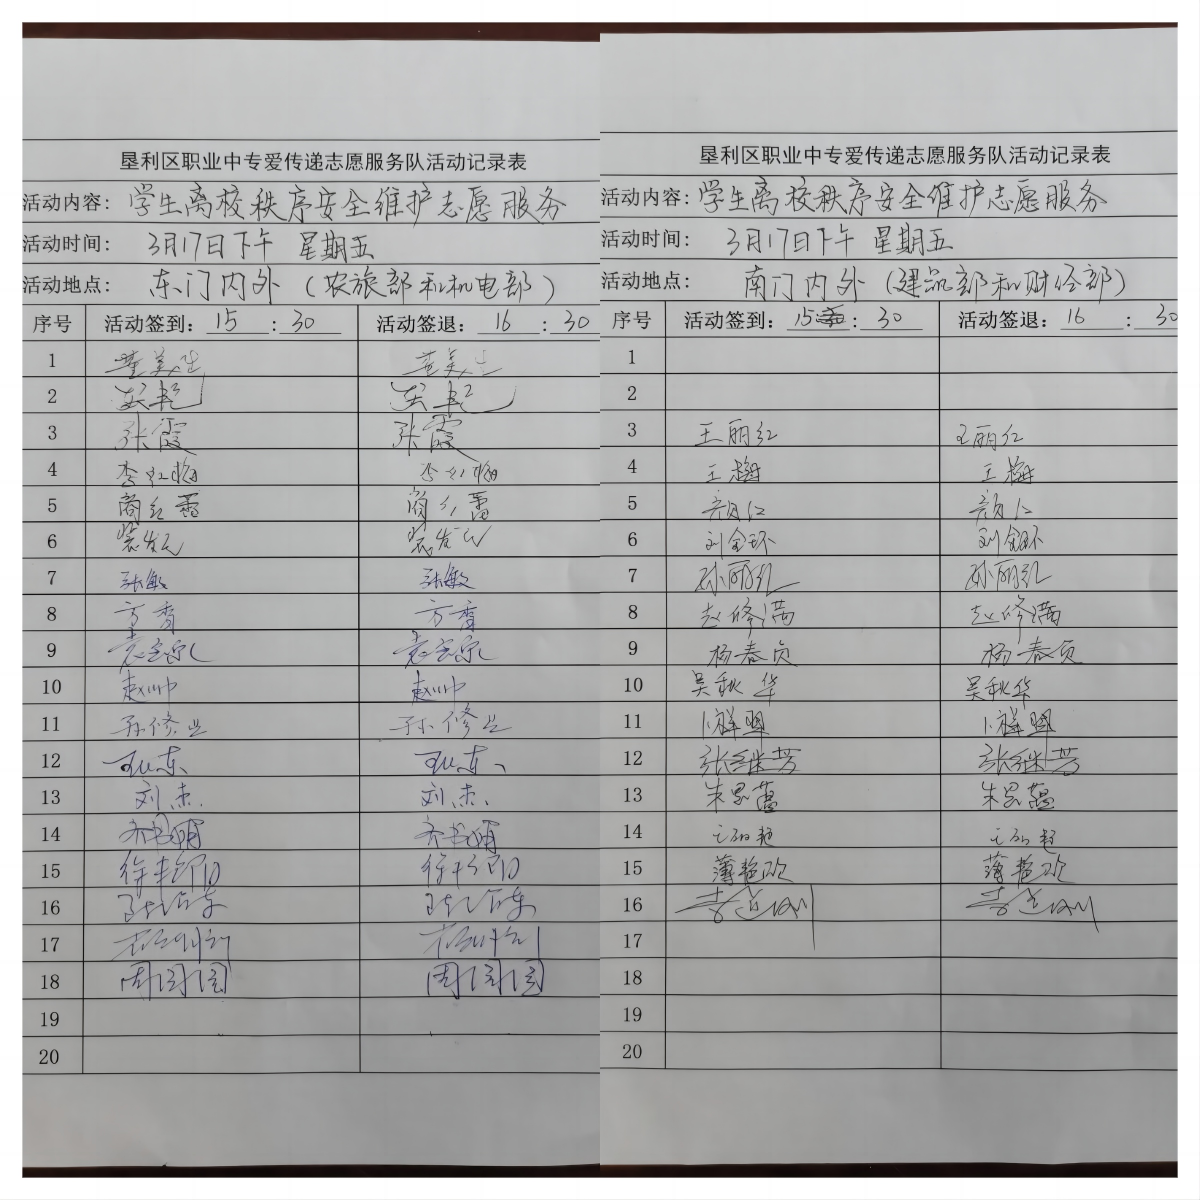 垦利区职业中专爱传递志愿服务队活动记录表
活动内容：学生离校秩序安全维护志愿服务
活动时间：3月17日下午 星期五
活动地点：东门内外（农旅部和机电部）
序号 活动签到：15：30 活动签退：16：30
1
2
3 张霞 张霞
4 李红梅 李红梅
5 商红蕾 商红蕾
6
7 张敏 张敏
8 方香 方香
9
10 赵帅 赵帅
11 孙修业 孙修业
12
13 刘杰 刘杰
14
15
16
17
18 周园园 周园园
19
20
垦利区职业中专爱传递志愿服务队活动记录表
活动内容：学生离校秩序安全维护志愿服务
活动时间：3月17日下午 星期五
活动地点：南门内外（建筑部和财经部）
序号 活动签到：15：30 活动签退：16：30
1
2
3 王丽红 王丽红
4 王梅 王梅
5 颜红 颜红
6 刘金环 刘金环
7 孙丽红 孙丽红
8 赵修满 赵修满
9 杨春贞 杨春贞
10 吴秋华 吴秋华
11
12 张继芳 张继芳
13 朱思蕴 朱思蕴
14
15 薄艳欢 薄艳欢
16
17
18
19
20